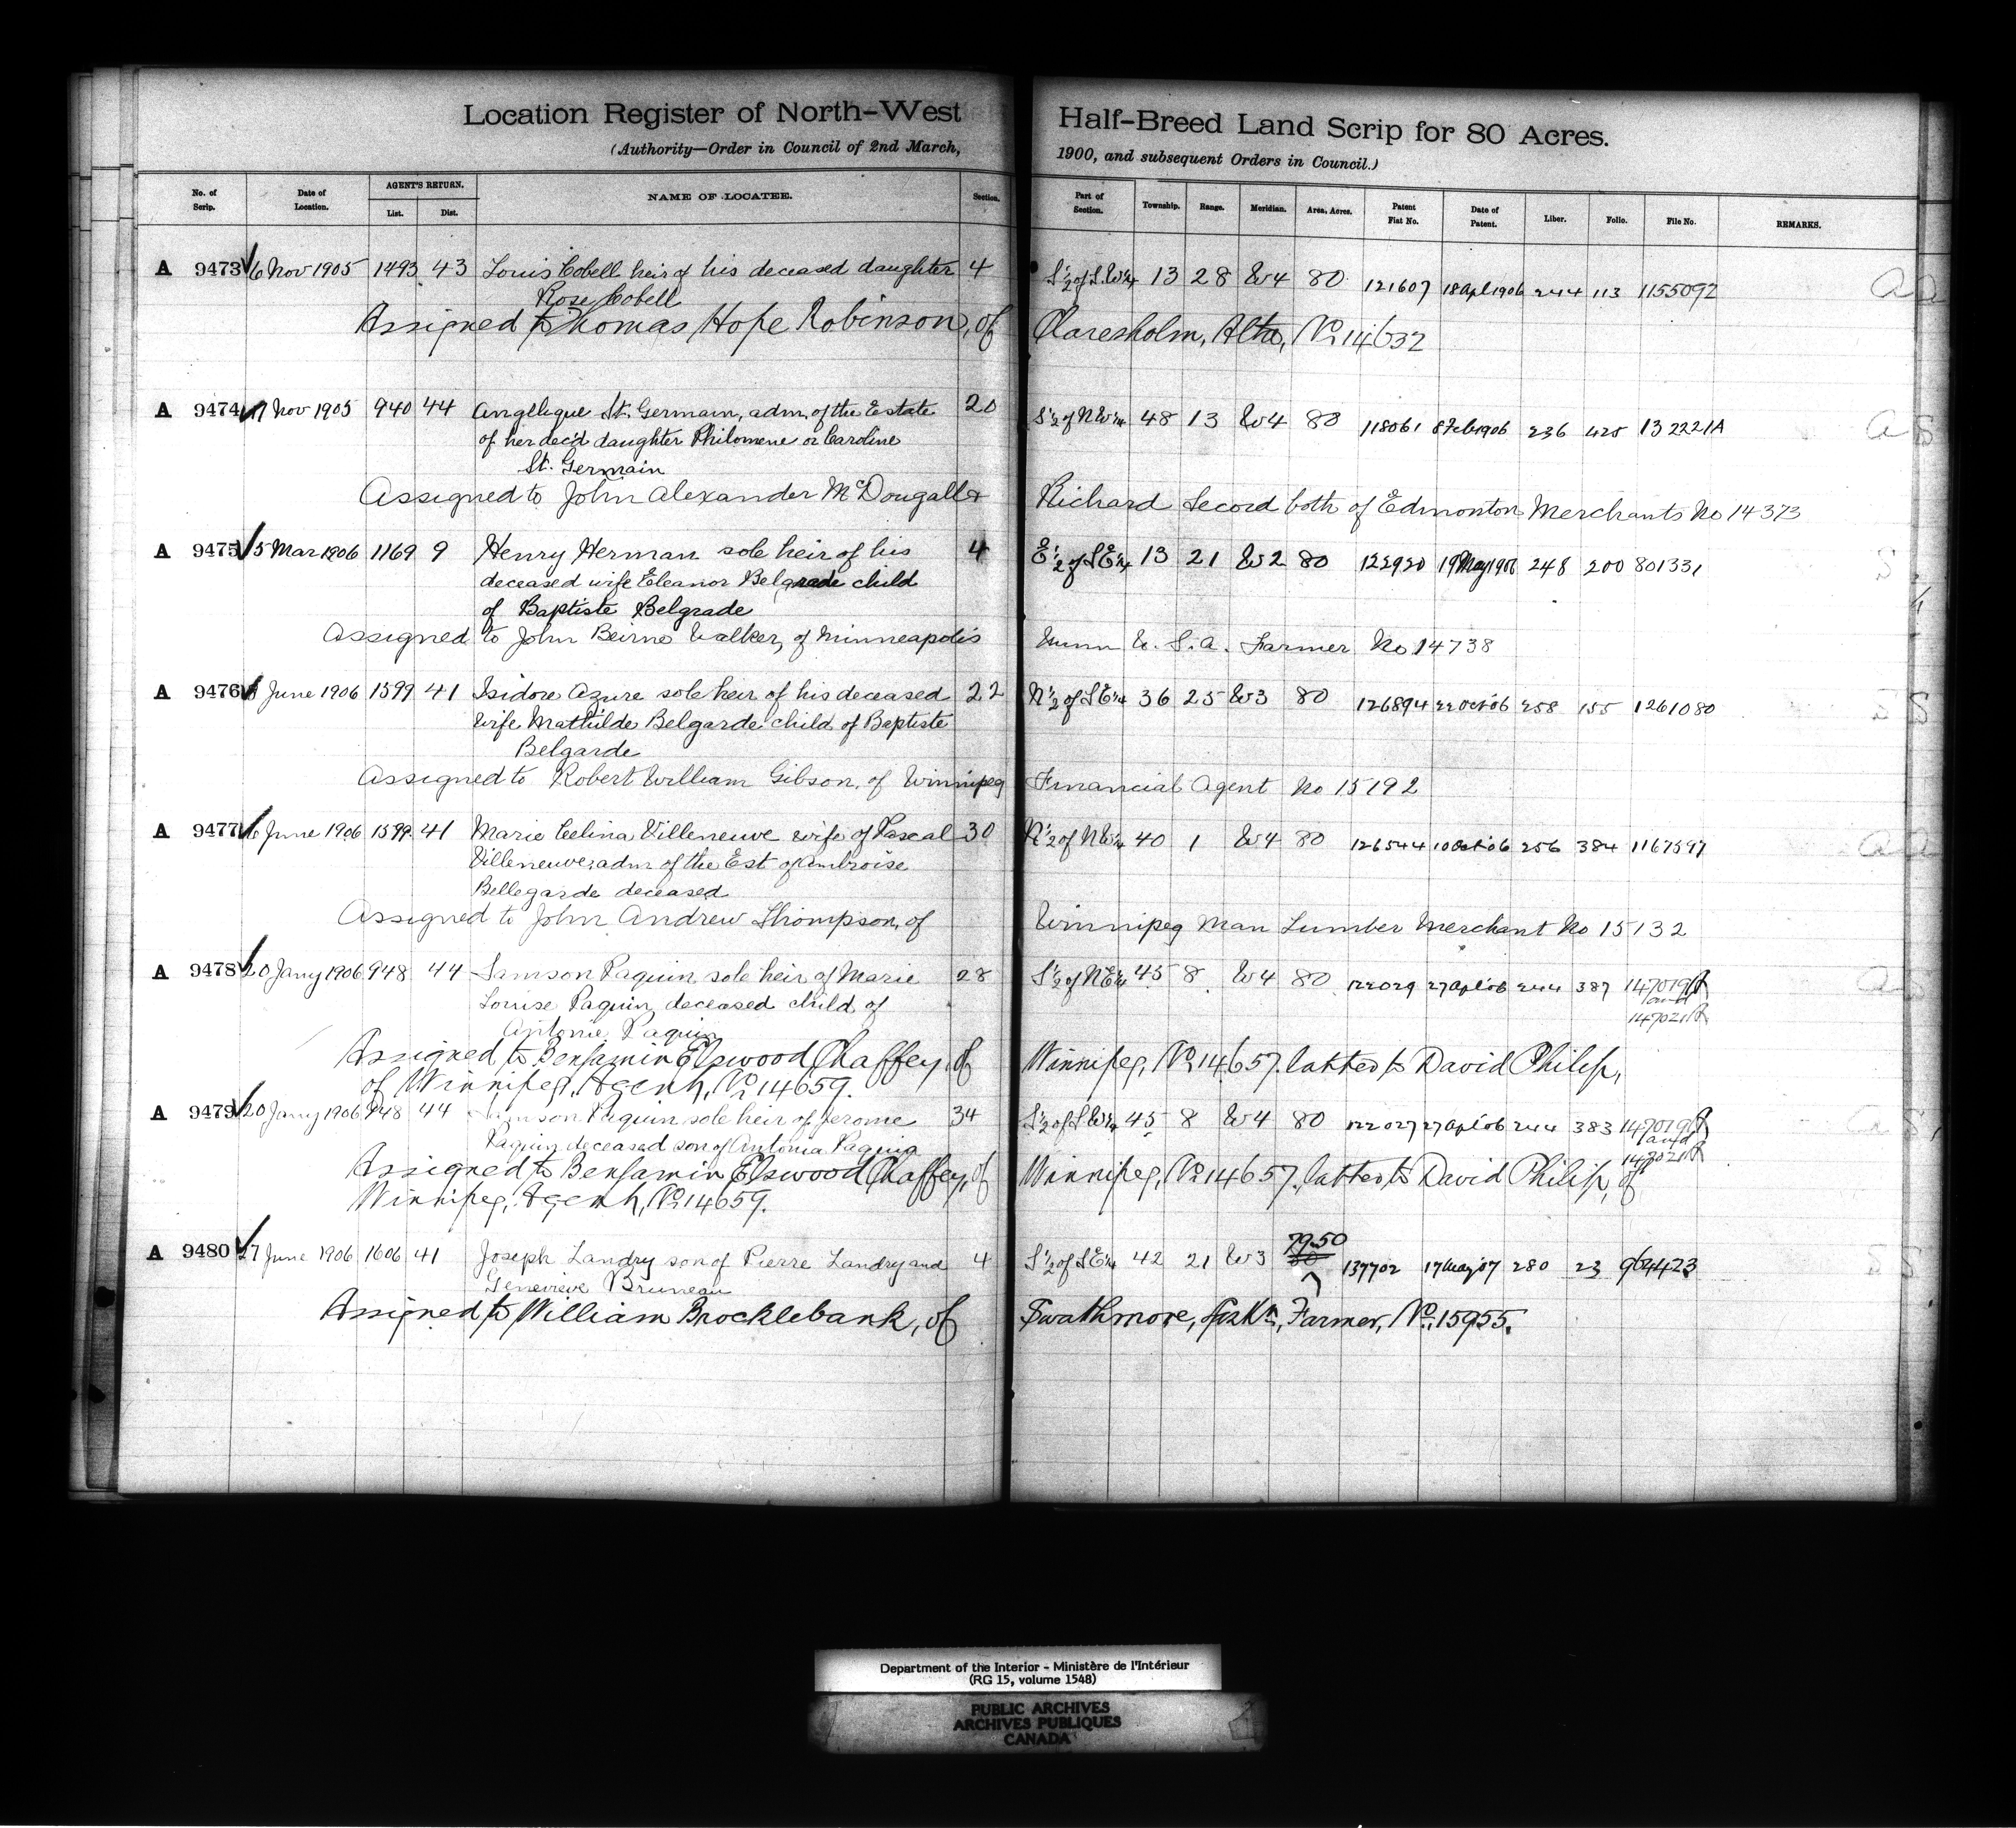 Location Register of North-West Half-Breed Land Scrip for 80 Acres.
(Authority—Order in Council of 2nd March, 1900, and subsequent Orders in Council.)
No. of Scrip. Date of Location. AGENT'S RETURN. List. Dist. NAME OF LOCATEE. Section. Part of Section. Township. Range. Meridian. Area, Acres. Patent Fiat No. Date of Patent. Liber. Folio. File No. REMARKS.
A 9473 6 Nov 1905 1493 43 Louis Cobell heir of his deceased daughter 4 S½ of S.W¼ 13 28 W4 80 121607 18 Apl 1906 244 113 1155092
Rose Cobell
Assigned to Thomas Hope Robinson, of Claresholm, Alta, No 14632
A 9474 17 Nov 1905 940 44 Angelique St. Germain, adm. of the Estate 20 S½ of NW¼ 48 13 W4 80 118061 8 Feb 1906 236 425 132221A
of her dec'd daughter Philomene or Caroline
St. Germain
Assigned to John Alexander McDougall & Richard Secord both of Edmonton Merchants No 14373
A 9475 5 Mar 1906 1169 9 Henry Herman sole heir of his 4 E½ of SE¼ 13 21 W2 80 122920 19 May 1906 248 200 801331
deceased wife Eleanor Belgrade child
of Baptiste Belgrade
Assigned to John Beirne Walker, of Minneapolis Minn U.S.A. Farmer No 14738
A 9476 June 1906 1599 41 Isidore Azure sole heir of his deceased 22 N½ of SE¼ 36 25 W3 80 126894 22 Oct 06 258 155 1261080
wife Mathilde Belgarde child of Baptiste
Belgarde
Assigned to Robert William Gibson, of Winnipeg Financial Agent No 15192
A 9477 6 June 1906 1599 41 Marie Celina Villeneuve wife of Pascal 30 N½ of NW¼ 40 1 W4 80 126544 10 Oct 06 256 384 1167597
Villeneuve, adm of the Est of Ambroise
Bellegarde deceased
Assigned to John Andrew Thompson, of Winnipeg Man Lumber Merchant No 15132
A 9478 20 Jany 1906 948 44 Samson Paquin sole heir of Marie 28 S½ of NE¼ 45 8 W4 80 122029 27 Apl 06 244 387 147019A
Louise Paquin deceased child of and
Antonie Paquin 147021A
Assigned to Benjamin Elswood Chaffey, of Winnipeg, No 14657. latter to David Philip,
of Winnipeg, Agent, No 14659.
A 9479 20 Jany 1906 948 44 Samson Paquin sole heir of Jerome 34 S½ of SW¼ 45 8 W4 80 122027 27 Apl 06 244 383 147019A
Paquin deceased son of Antonia Paquin and
147021A
Assigned to Benjamin Elswood Chaffey, of Winnipeg, No 14657, latter to David Philip, of
Winnipeg, Agent, No 14659.
79.50
A 9480 27 June 1906 1606 41 Joseph Landry son of Pierre Landry and 4 S½ of SE¼ 42 21 W3 80 137702 17 May 07 280 23 964423
Genevieve Bruneau
Assigned to William Brocklebank, of Swathmore, Sask., Farmer, No. 15955.
Department of the Interior - Ministère de l'Intérieur
(RG 15, volume 1548)
PUBLIC ARCHIVES
ARCHIVES PUBLIQUES
CANADA